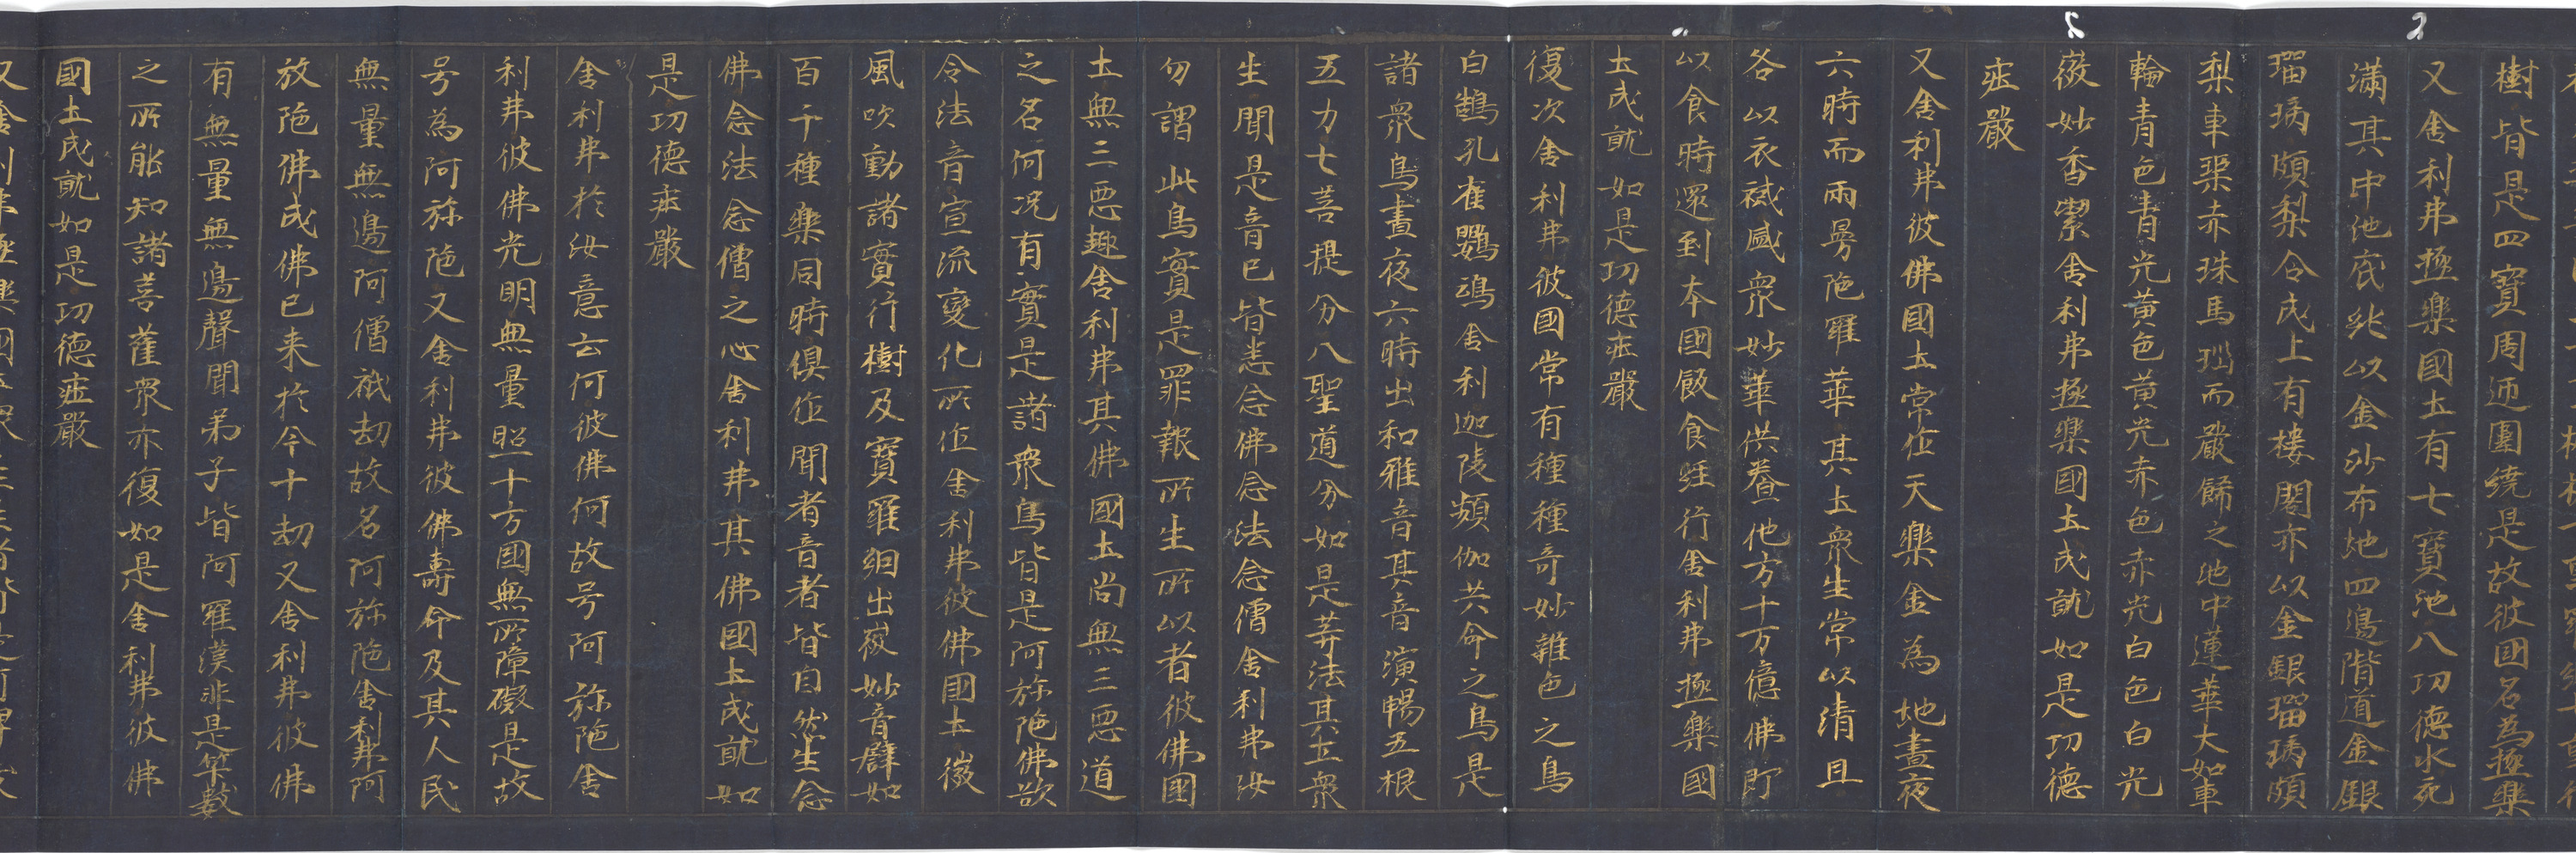 樹皆是四寶周迊圍繞是故彼國名為極樂
又舍利弗極樂國土有七寶池八功德水充
滿其中池底純以金沙布地四邊階道金銀
瑠璃頗梨合成上有樓閣亦以金銀瑠璃頗
梨車𤦲赤珠馬瑙而嚴飾之池中蓮華大如車
輪青色青光黃色黃光赤色赤光白色白光
微妙香絜舍利弗極樂國土成就如是功德
庄嚴
又舍利弗彼佛國土常作天樂金為地晝夜
六時而雨曼陁羅華其土衆生常以清旦
各以衣祴盛衆妙華供養他方十万億佛即
以食時還到本國飯食經行舍利弗極樂國
土成就如是功德庄嚴
復次舍利弗彼國常有種種奇妙雜色之鳥
白鶴孔雀鸚鵡舍利迦陵頻伽共命之鳥是
諸衆鳥晝夜六時出和雅音其音演暢五根
五力七菩提分八聖道分如是等法其土衆
生聞是音已皆悉念佛念法念僧舍利弗汝
勿謂此鳥實是罪報所生所以者彼佛國
土無三惡趣舍利弗其佛國土尚無三惡道
之名何况有實是諸衆鳥皆是阿弥陁佛欲
令法音宣流變化所作舍利弗彼佛國土微
風吹動諸寶行樹及寶羅網出微妙音譬如
百千種樂同時俱作聞者音者皆自然生念
佛念法念僧之心舍利弗其佛國土成就如
是功德庄嚴
舍利弗於汝意云何彼佛何故号阿弥陁舍
利弗彼佛光明無量照十方國無所障礙是故
号為阿弥陁又舍利弗彼佛壽命及其人民
無量無邊阿僧祇劫故名阿弥陁舍利弗阿
放陁佛成佛已来於今十劫又舍利弗彼佛
有無量無邊聲聞弟子皆阿羅漢非是筭數
之所能知諸菩薩衆亦復如是舍利弗彼佛
國土成就如是功德庄嚴